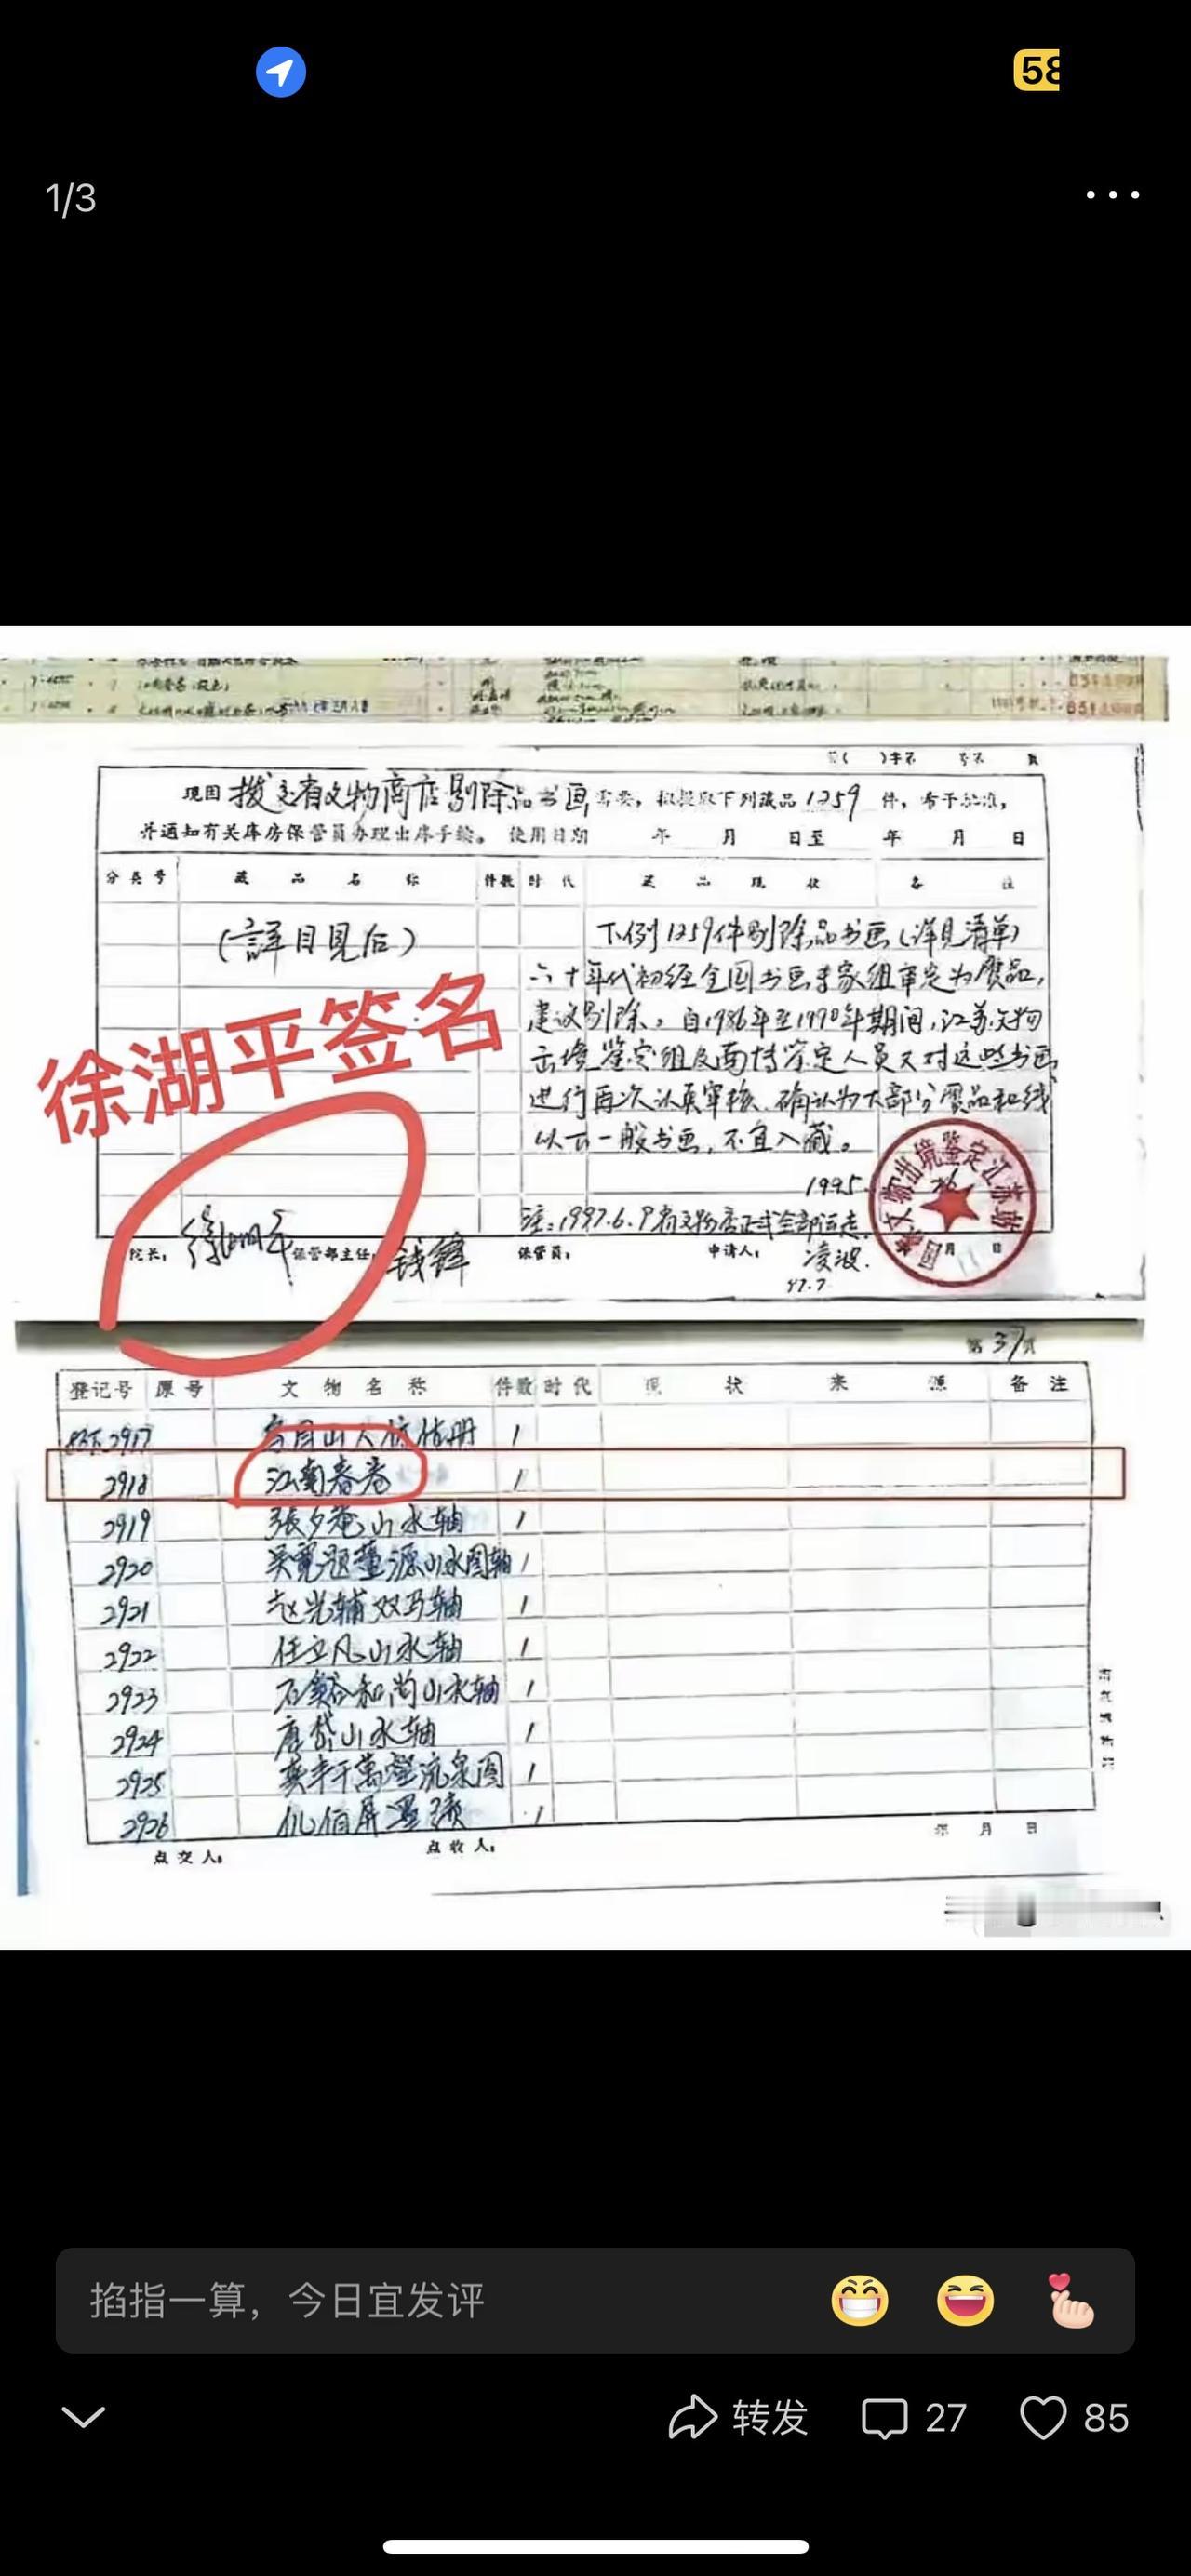 58
1/3
现因 拨交省文物商店剔除品书画 需要，拟提取下列藏品1259件，希予批准，
并通知有关库房保管员办理出库手续。 使用日期 年 月 日至 年 月 日
分类号 藏品名称 件数 时代 藏品现状 备注
(詳目見后)
下列1259件剔除品书画(详见清单)
六十年代初经全国书画专家组审定为赝品，
建议剔除。自1986年至1990年期间，江苏文物
出境鉴定组及南博鉴定人员又对这些书画
进行再次认真审核，确认为大部分赝品和线
以下一般书画，不宜入藏。
徐湖平签名
1995.
注：1997.6.9省文物店正式全部运走
院长： 徐湖平 保管部主任： 钱锋 保管员： 申请人： 凌波.
97.7
第37页
登记号 原号 文物名称 件数 时代 现状 来源 备注
2917 1
2918 江南春卷 1
2919 張夕菴山水轴 1
2920 吴宽题董源山水图轴 1
2921 赵光辅双马轴 1
2922 任立凡山水轴 1
2923 石谿和尚山水轴 1
2924 唐岱山水轴 1
2925 流泉图 1
2926 1
年 月 日
点交人： 点收人：
掐指一算，今日宜发评
转发 27 85